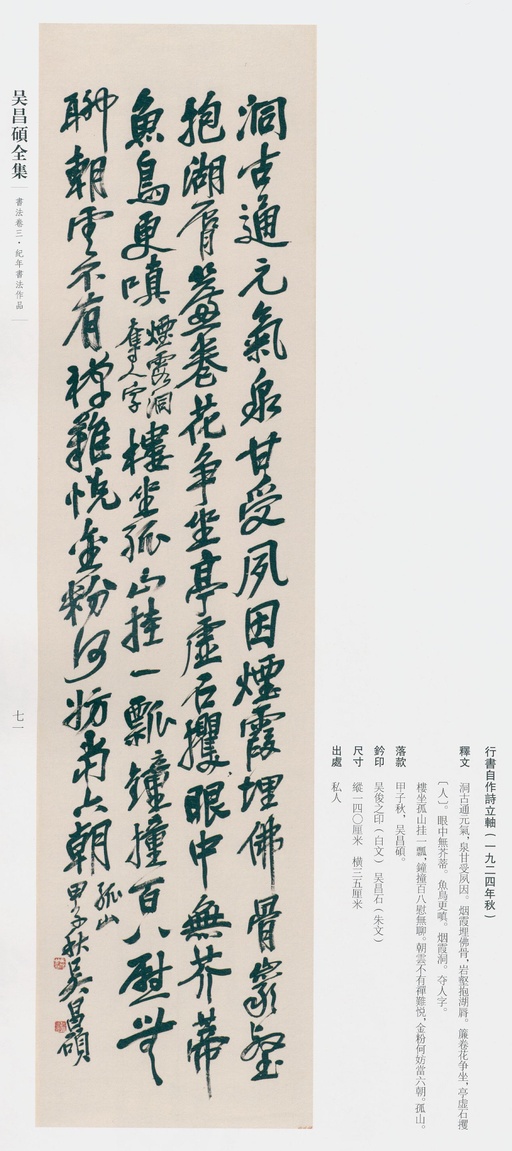 洞古通元氣泉甘受夙因煙霞埋佛骨巖壑
抱湖脣簾卷花爭坐亭虛石攫眼中無芥蒂
魚鳥更嗔煙霞洞奪人字樓坐孤山挂一瓢鐘撞百八慰無
聊朝雲不有禪難悅金粉何妨當六朝孤山甲子秋吴昌碩
行書自作詩立軸（一九二四年秋）
釋文 洞古通元氣，泉甘受夙因。烟霞埋佛骨，岩壑抱湖脣。簾卷花爭坐，亭虛石攫
〔人〕。眼中無芥蒂。魚鳥更嗔。烟霞洞。夺人字。
樓坐孤山挂一瓢，鐘撞百八慰無聊。朝雲不有禪難悅，金粉何妨當六朝。孤山。
落款 甲子秋，吴昌碩。
鈐印 吴俊之印（白文） 吴昌石（朱文）
尺寸 縱一四〇厘米 橫三五厘米
出處 私人
吴昌碩全集
書法卷三·紀年書法作品
七一